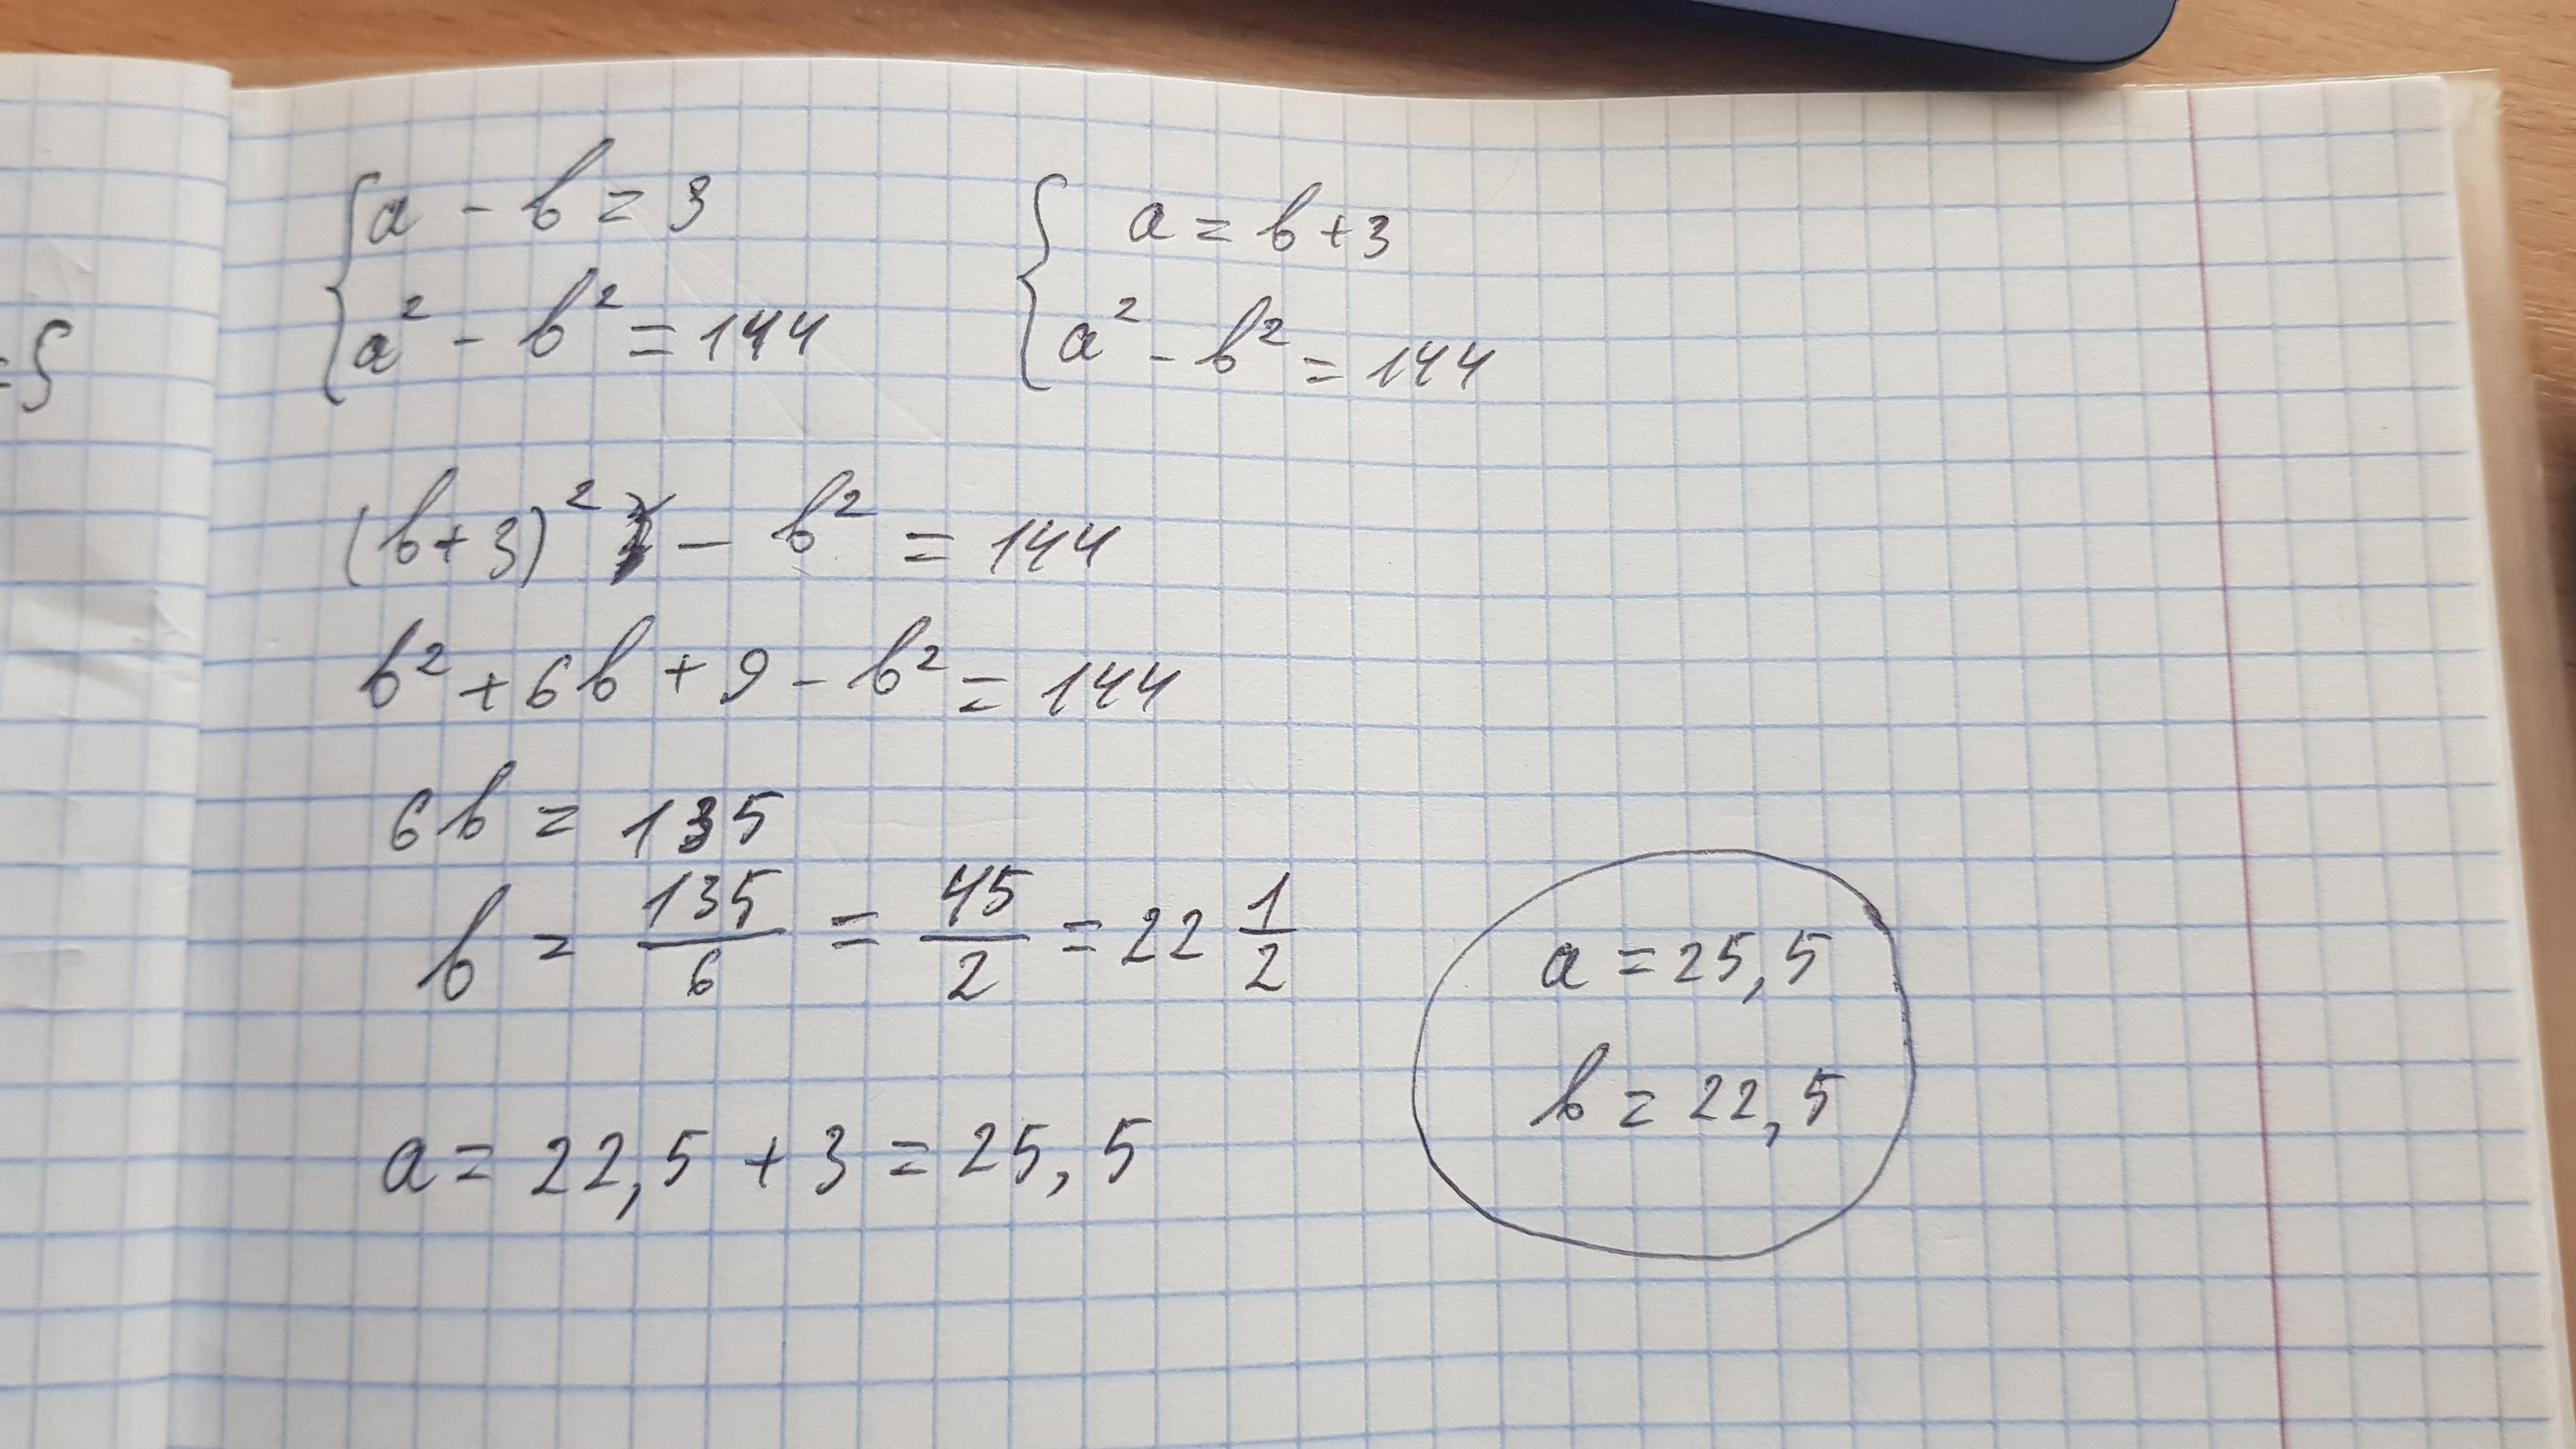 =5
a - b = 3
a² - b² = 144
a = b + 3
a² - b² = 144
(b+3)² - b² = 144
b² + 6b + 9 - b² = 144
6b = 135
b = 135/6 = 45/2 = 22 1/2
a = 22,5 + 3 = 25,5
a = 25,5
b = 22,5